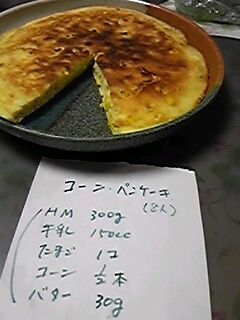 コーン・パンケーキ
(3人)
HM 300g
牛乳 150cc
たまご 1コ
コーン 1/2本
バター 30g